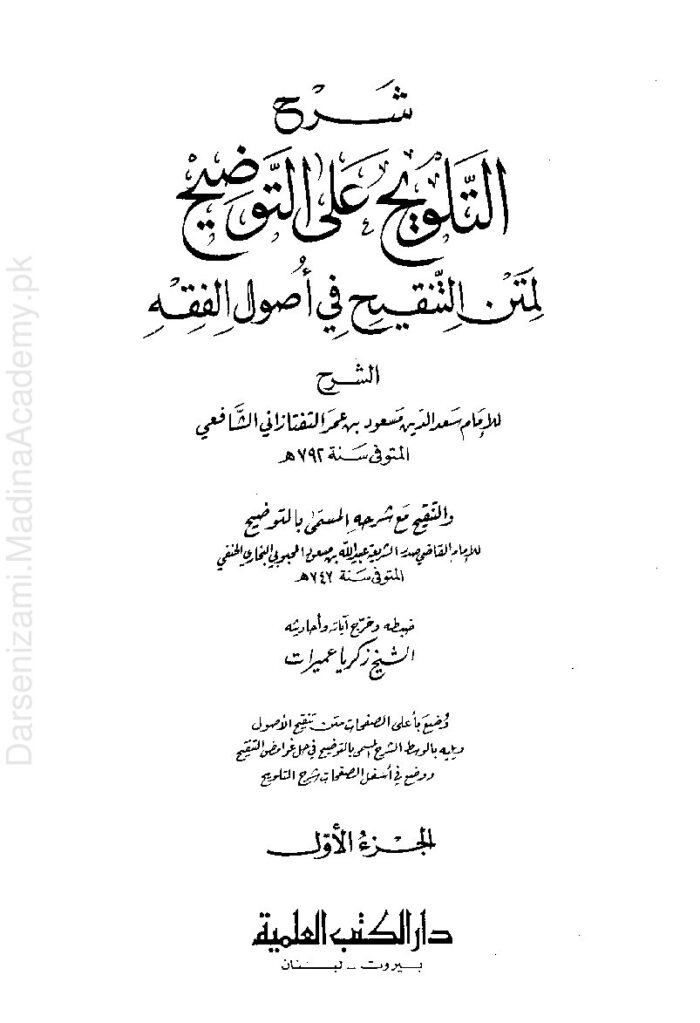 شرح
التَّلويح على التَّوضيح
لمَتن التَّنقيح في أصول الفِقْه
الشرح
للإمام سعد الدين مسعود بن عمر التفتازاني الشَّافعي
المتوفى سَنة ٧٩٢هـ
والتنقيح مع شرحه المسمى بالتوضيح
للإمام القاضي صدر الشريعة عبيد الله بن مسعود المحبوبي البخاري الحنفي
المتوفى سَنة ٧٤٧هـ
ضبطه وخرّج آياته وأحاديثه
الشيخ زكريا عميرات
وُضِعَ بأعلى الصفحات متن تنقيح الأصول
ويليه بالوسط الشرح المسمى بالتوضيح في حل غوامض التنقيح
ووضع في أسفل الصفحات شرح التلويح
الجُزءُ الأوّل
دار الكتب العلمية
بيروت - لبنان
Darsenizami.MadinaAcademy.pk